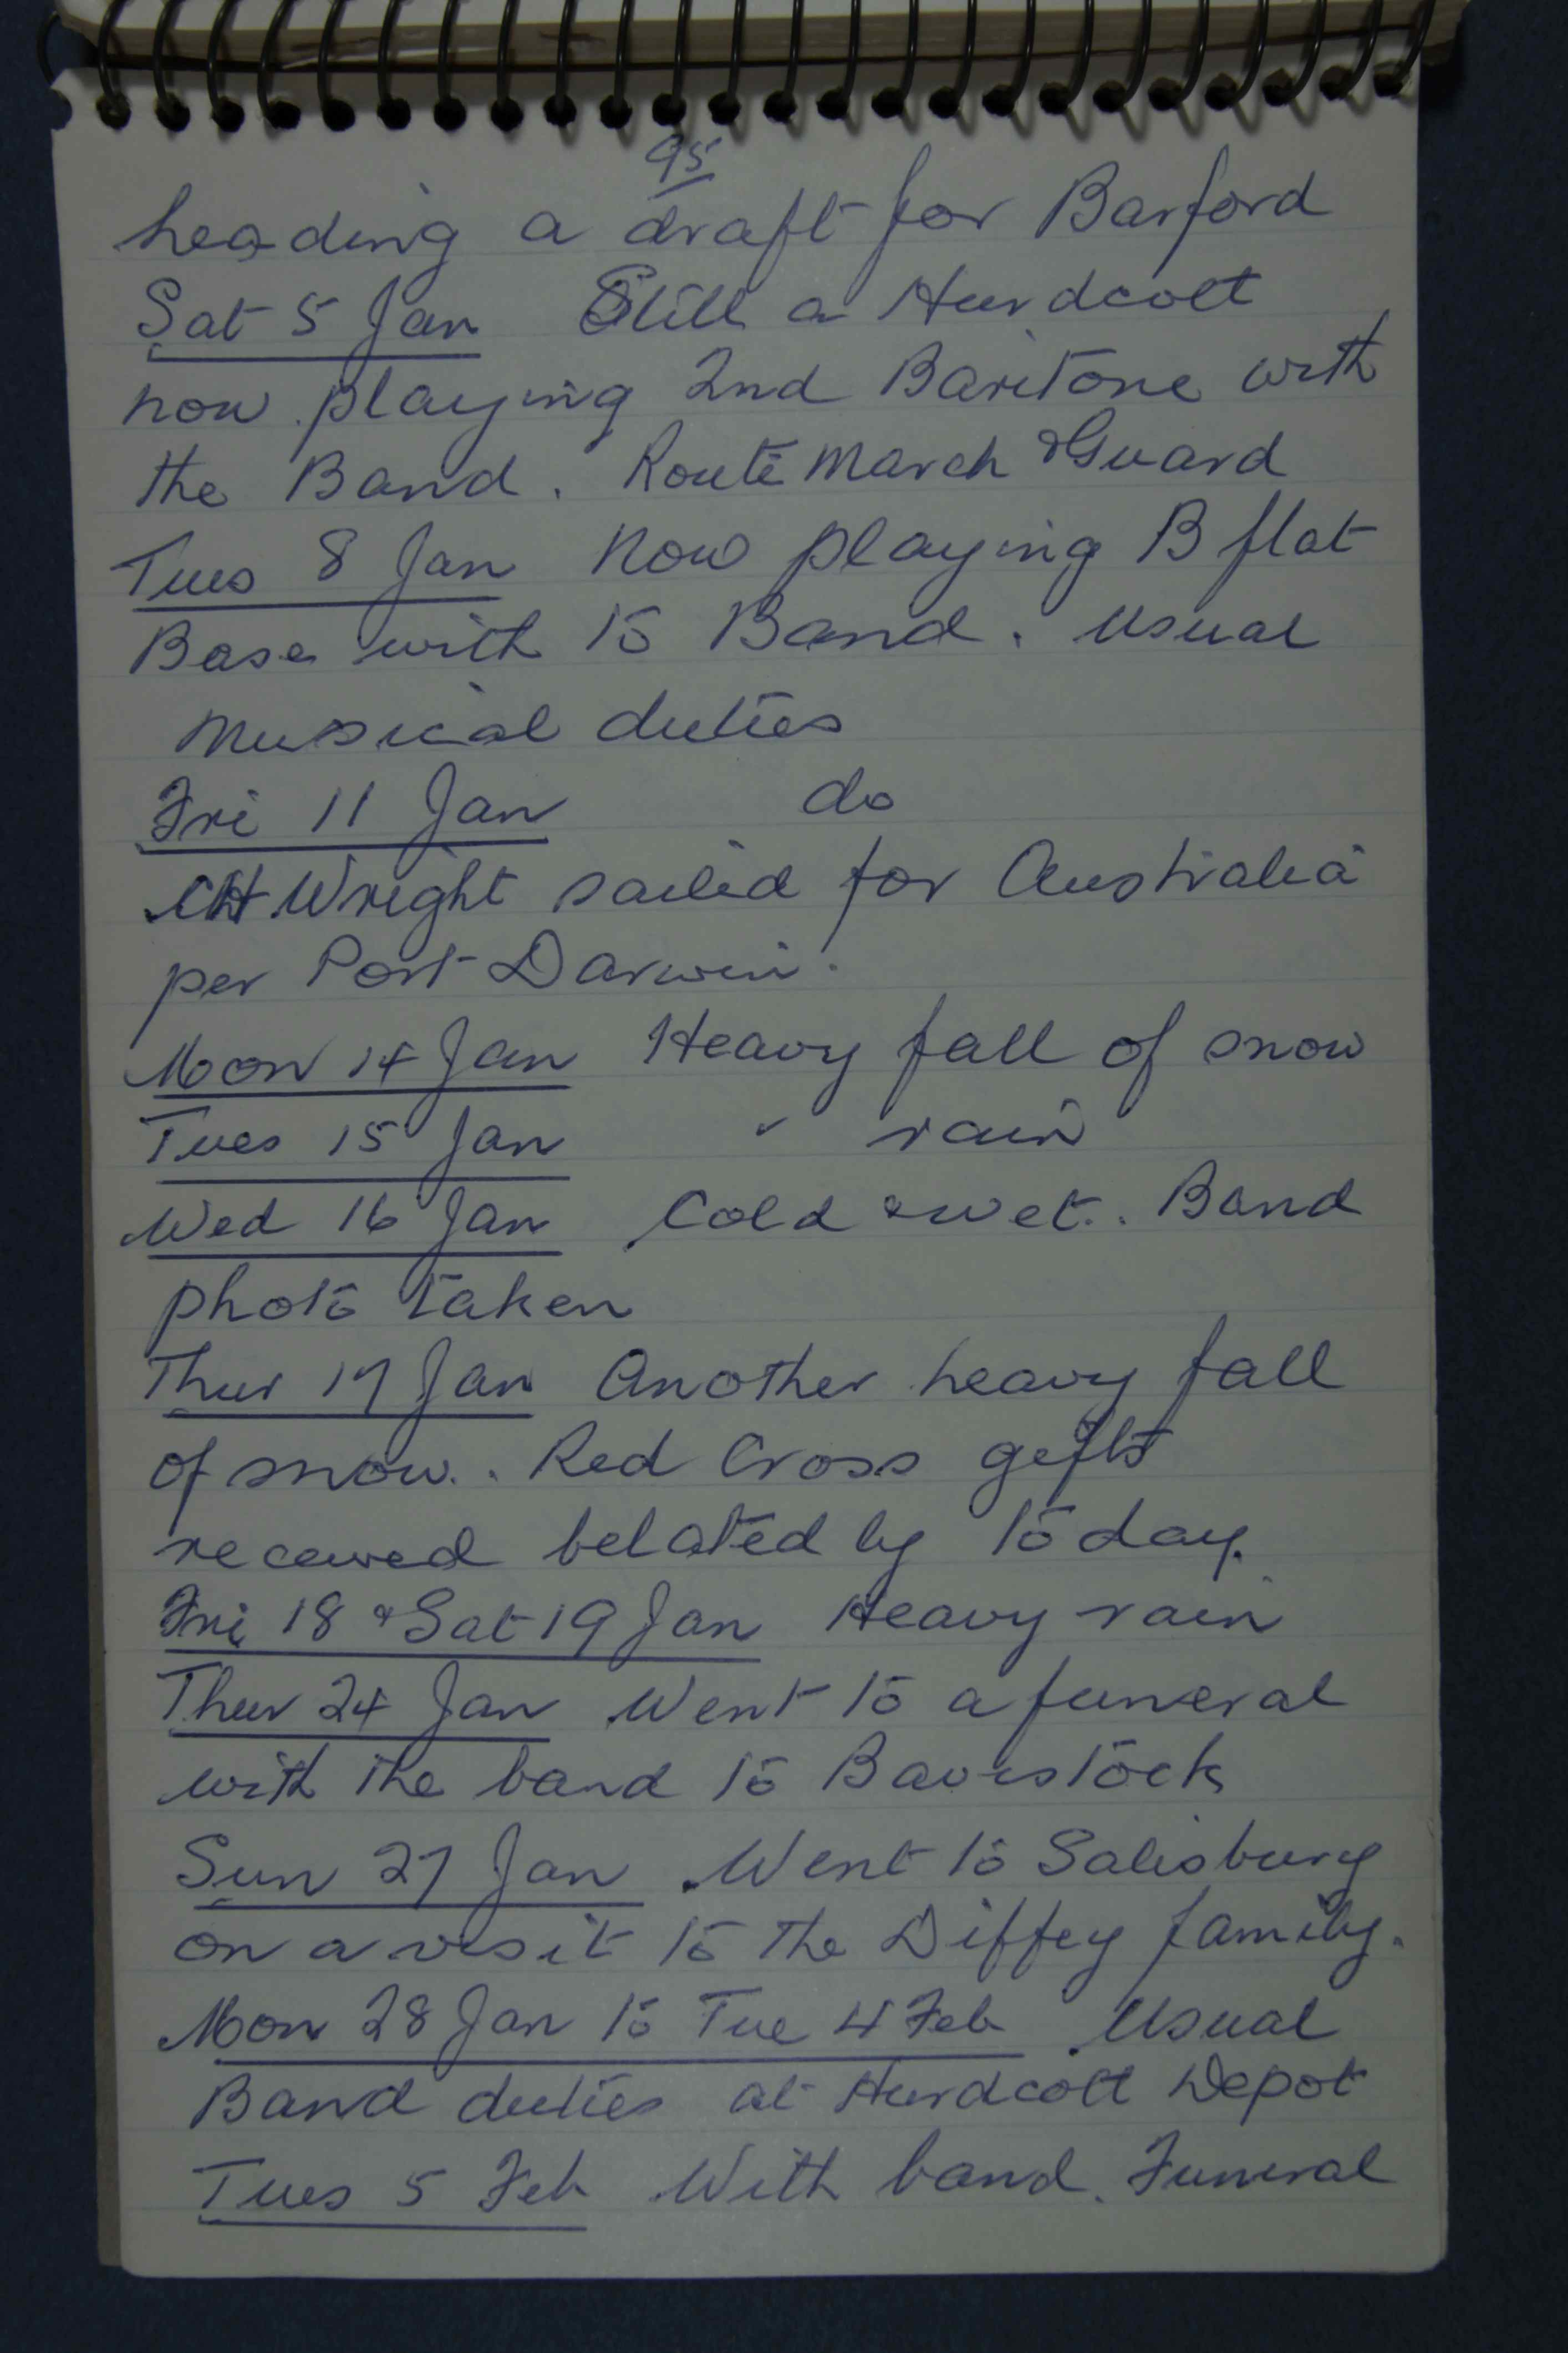 95
heading a draft for Barford
Sat 5 Jan Still a Hurdcott
now playing 2nd Baritone with
the Band. Route March & Guard
Tues 8 Jan Now playing B flat
Base with to Band. Usual
musical duties
Fri 11 Jan do
CH Wright sailed for Australia
per Port Darwin.
Mon 14 Jan Heavy fall of snow
Tues 15 Jan " rain
Wed 16 Jan Cold & wet. Band
photo taken
Thur 17 Jan Another heavy fall
of snow. Red Cross gifts
received belated by to day.
Fri 18 & Sat 19 Jan Heavy rain
Thur 24 Jan Went to a funeral
with the band to Baverstock
Sun 27 Jan Went to Salisbury
on a visit to the Diffey family.
Mon 28 Jan to Tue 4 Feb Usual
Band duties at Hurdcott Depot
Tues 5 Feb With band. Funeral